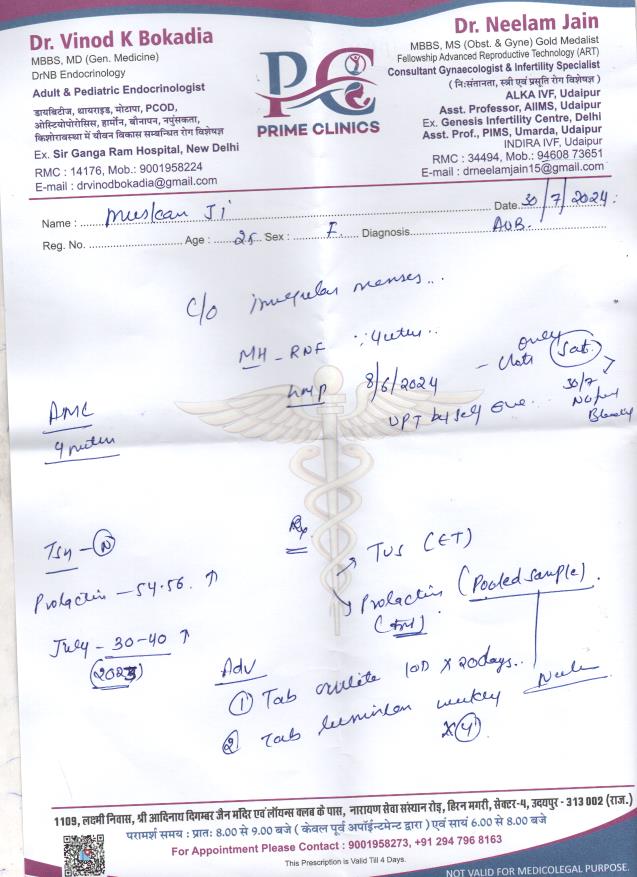 Dr. Vinod K Bokadia
MBBS, MD (Gen. Medicine)
DrNB Endocrinology
Adult & Pediatric Endocrinologist
डायबिटीज, थायराइड, मोटापा, PCOD,
ओस्टियोपोरोसिस, हार्मोन, बौनापन, नपुंसकता,
किशोरावस्था में यौवन विकास सम्बन्धित रोग विशेषज्ञ
Ex. Sir Ganga Ram Hospital, New Delhi
RMC : 14176, Mob.: 9001958224
E-mail : drvinodbokadia@gmail.com
PC
PRIME CLINICS
Dr. Neelam Jain
MBBS, MS (Obst. & Gyne) Gold Medalist
Fellowship Advanced Reproductive Technology (ART)
Consultant Gynaecologist & Infertility Specialist
( नि:संतानता, स्त्री एवं प्रसूति रोग विशेषज्ञ )
ALKA IVF, Udaipur
Asst. Professor, AIIMS, Udaipur
Ex. Genesis Infertility Centre, Delhi
Asst. Prof., PIMS, Umarda, Udaipur
INDIRA IVF, Udaipur
RMC : 34494, Mob.: 94608 73651
E-mail : drneelamjain15@gmail.com
Name : Muskan Ji Date 30/7/2024
Reg. No. Age : 25 Sex : F Diagnosis AUB.
C/o irregular menses..
MH - RNF
only
clots Sat.
LMP 8/6/2024
30/7
UPT by self -ve
AMC
TSH - N
Rx
TVS (ET)
Prolactin - 54.56 ↑
Prolactin (Pooled sample)
July - 30-40 ↑
2023
Adv
① Tab 10D x 20days..
② Tab weekly
x 4
1109, लक्ष्मी निवास, श्री आदिनाथ दिगम्बर जैन मंदिर एवं लॉयन्स क्लब के पास, नारायण सेवा संस्थान रोड़, हिरन मगरी, सेक्टर-4, उदयपुर - 313 002 (राज.)
परामर्श समय : प्रात: 8.00 से 9.00 बजे ( केवल पूर्व अपॉईन्टमेन्ट द्वारा ) एवं सायं 6.00 से 8.00 बजे
For Appointment Please Contact : 9001958273, +91 294 796 8163
This Prescription is Valid Till 4 Days.
NOT VALID FOR MEDICOLEGAL PURPOSE.